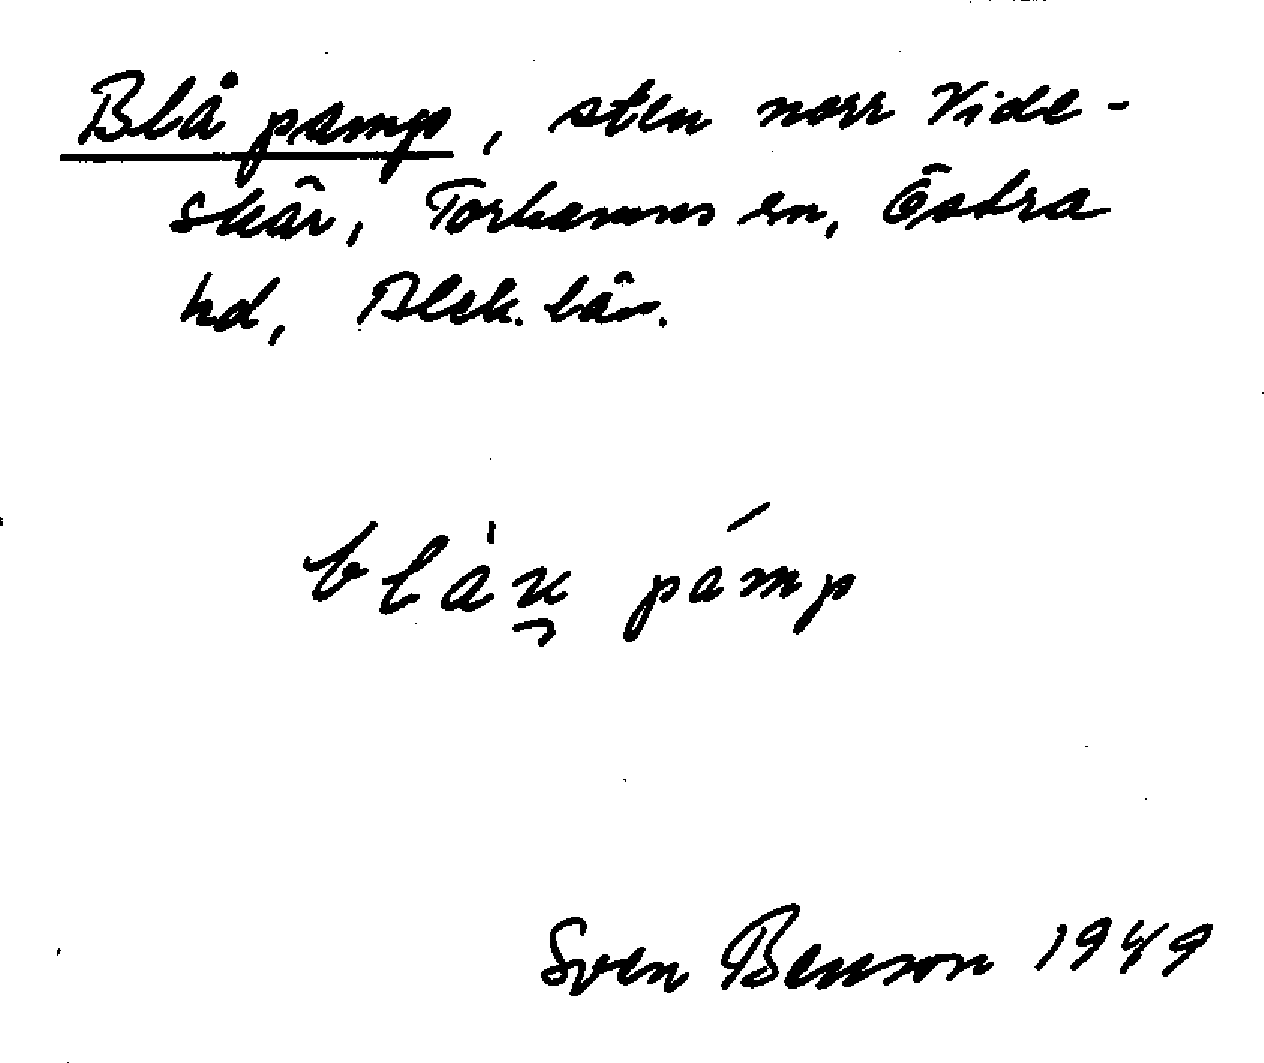 Blå pamp, sten norr Vide-
skär, Torhamns sn, Östra
hd, Blek. län.
blàu̯ pámp
Sven Benson 1949